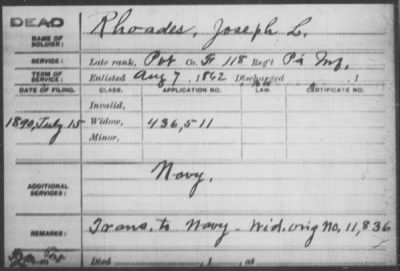 DEAD
NAME OF SOLDIER: Rhoades, Joseph L.
SERVICE: Late rank, Pvt Co. F 118 Reg't Pa Inf.
TERM OF SERVICE: Enlisted Aug 7, 1862 Discharged , 1
DATE OF FILING. CLASS. APPLICATION NO. LAW. CERTIFICATE NO.
Invalid,
1890, July 15 Widow, 436,511
Minor,
ADDITIONAL SERVICES: Navy.
REMARKS: Trans. to Navy - Wid. orig No. 11,836
Died , 1 , at